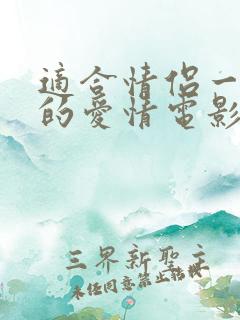 適合情侶一
的愛情電影
三界新聖主
未經同意禁止轉載